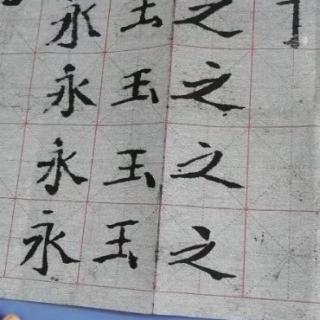 永玉之
永玉之
永玉之
永玉之